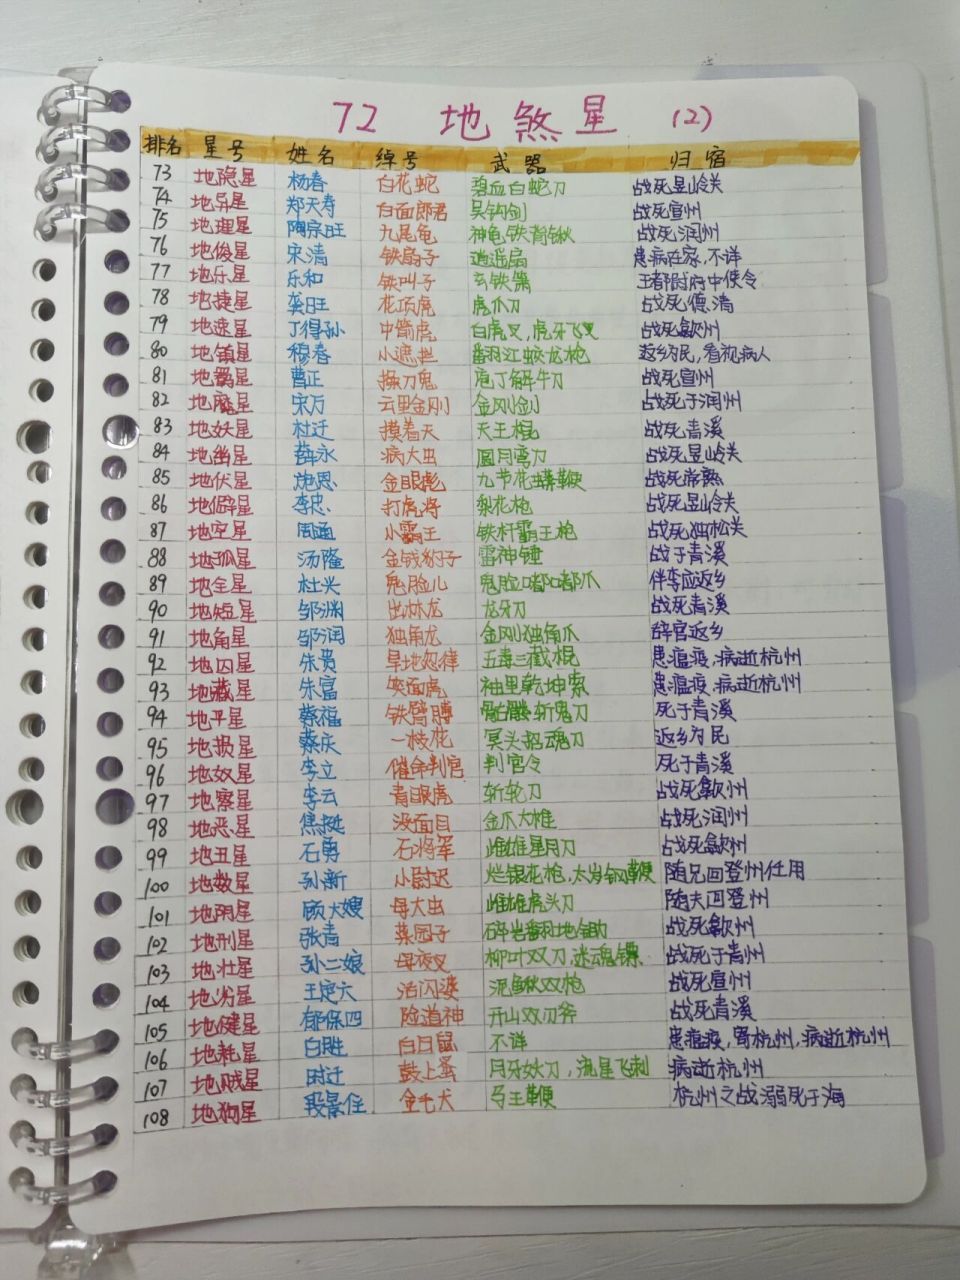 72 地煞星 (2)
排名 星号 姓名 绰号 武器 归宿
73 地隐星 杨春 白花蛇 碧血白蛇刀 战死昱岭关
74 地异星 郑天寿 白面郎君 吴钩剑 战死宣州
75 地理星 陶宗旺 九尾龟 神龟铁背锹 战死润州
76 地俊星 宋清 铁扇子 逍遥扇 患病在家,不详
77 地乐星 乐和 铁叫子 玄铁箫 王都尉府中使令
78 地捷星 龚旺 花项虎 虎爪刀 战死德清
79 地速星 丁得孙 中箭虎 白虎叉,虎牙飞叉 战死歙州
80 地镇星 穆春 小遮拦 翻江蛟龙枪 返乡为民,看视病人
81 地羁星 曹正 操刀鬼 庖丁解牛刀 战死宣州
82 地魔星 宋万 云里金刚 金刚剑 战死于润州
83 地妖星 杜迁 摸着天 天王棍 战死青溪
84 地幽星 薛永 病大虫 圆月弯刀 战死昱岭关
85 地伏星 施恩 金眼彪 九节花蟒鞭 战死常熟
86 地僻星 李忠 打虎将 梨花枪 战死昱岭关
87 地空星 周通 小霸王 铁杆霸王枪 战死独松关
88 地孤星 汤隆 金钱豹子 雷神锤 战于青溪
89 地全星 杜兴 鬼脸儿 鬼脸嘟嘟爪 伴李应返乡
90 地短星 邹渊 出林龙 龙牙刀 战死青溪
91 地角星 邹润 独角龙 金刚独角爪 辞官返乡
92 地囚星 朱贵 旱地忽律 五毒三截棍 患瘟疫,病逝杭州
93 地藏星 朱富 笑面虎 袖里乾坤索 患瘟疫,病逝杭州
94 地平星 蔡福 铁臂膊 骷髅斩鬼刀 死于青溪
95 地损星 蔡庆 一枝花 冥头招魂刀 返乡为民
96 地奴星 李立 催命判官 判官令 死于青溪
97 地察星 李云 青眼虎 斩轮刀 战死歙州
98 地恶星 焦挺 没面目 金爪大椎 战死润州
99 地丑星 石勇 石将军 雌雄星月刀 战死歙州
100 地数星 孙新 小尉迟 烂银花枪,太岁钢鞭 随兄回登州任用
101 地阴星 顾大嫂 母大虫 雌雄虎头刀 随夫回登州
102 地刑星 张青 菜园子 碎岩翻地锄 战死歙州
103 地壮星 孙二娘 母夜叉 柳叶双刀,迷魂镖 战死于青州
104 地劣星 王定六 活闪婆 泥鳅双枪 战死宣州
105 地健星 郁保四 险道神 开山双刃斧 战死青溪
106 地耗星 白胜 白日鼠 不详 患瘟疫,寄杭州,病逝杭州
107 地贼星 时迁 鼓上蚤 月牙妖刀,流星飞刺 病逝杭州
108 地狗星 段景住 金毛犬 马王鞭 杭州之战溺死于海